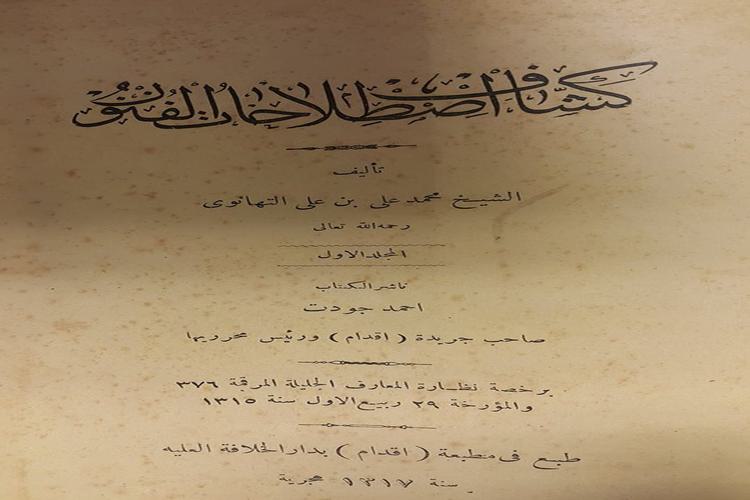 كشاف اصطلاحات الفنون
تأليف
الشيخ محمد على بن على التهانوى
رحمه الله تعالى
المجلد الاول
ناشر الكتاب
احمد جودت
صاحب جريدة ( اقدام ) ورئيس محرريها
برخصة نظارة المعارف الجليلة المرقمة ٣٧٦
والمؤرخة ٢٩ ربيع الاول سنة ١٣١٥
طبع فى مطبعة ( اقدام ) بدار الخلافة العليه
سنة ١٣١٧ هجرية